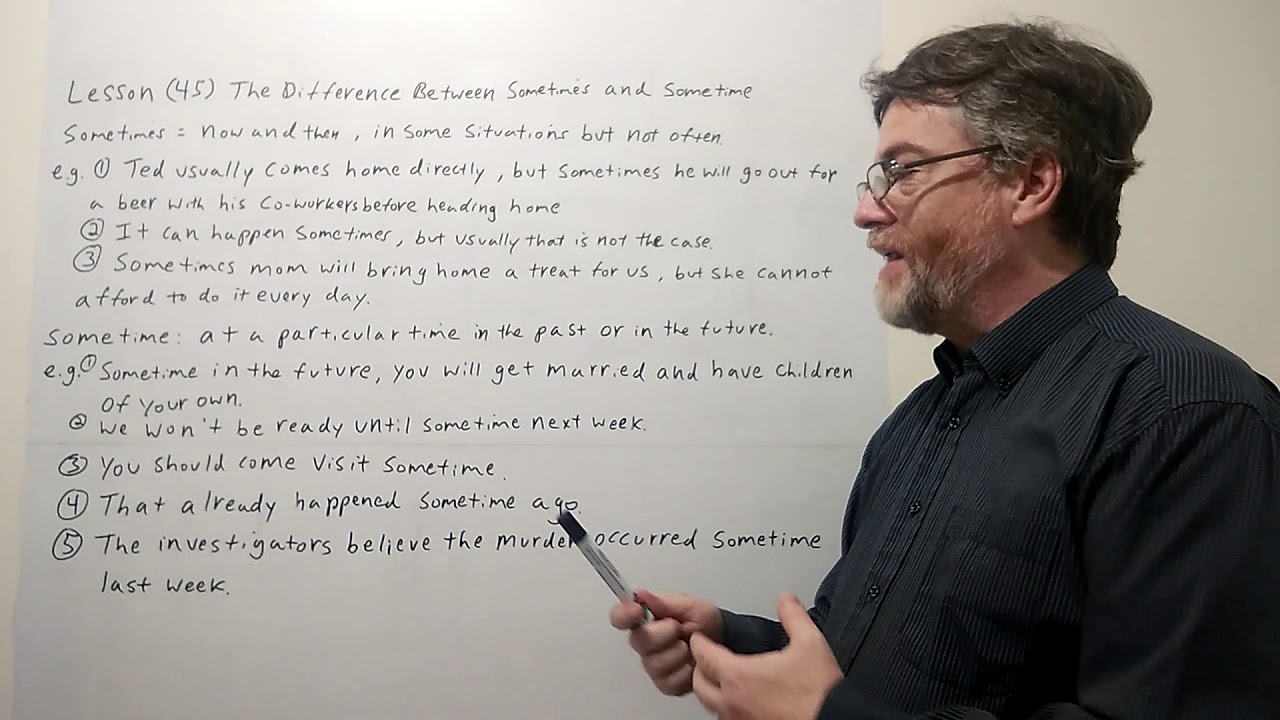 Lesson (45) The Difference Between Sometimes and Sometime
Sometimes = now and then, in some situations but not often.
e.g. ① Ted usually comes home directly, but sometimes he will go out for
a beer with his co-workers before heading home
② It can happen sometimes, but usually that is not the case.
③ Sometimes mom will bring home a treat for us, but she cannot
afford to do it every day.
Sometime: at a particular time in the past or in the future.
e.g. ① Sometime in the future, you will get married and have children
of your own.
② We won't be ready until sometime next week.
③ You should come visit sometime.
④ That already happened sometime ago.
⑤ The investigators believe the murder occurred sometime
last week.